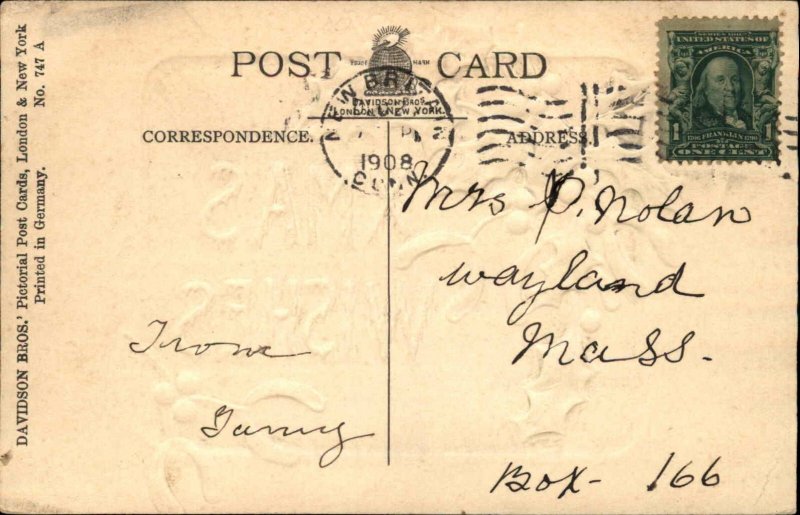 POST CARD
DAVIDSON BROS.
LONDON & NEW YORK.
CORRESPONDENCE.
ADDRESS.
NEW BRIT
1908
CONN.
SERIES 1902
UNITED STATES OF
AMERICA
1 FRANKLIN 1
POSTAGE
ONE CENT
Mrs P. Nolan
Wayland
Mass.
Box - 166
From
DAVIDSON BROS.' Pictorial Post Cards, London & New York
Printed in Germany. No. 747 A
XMAS
WISHES